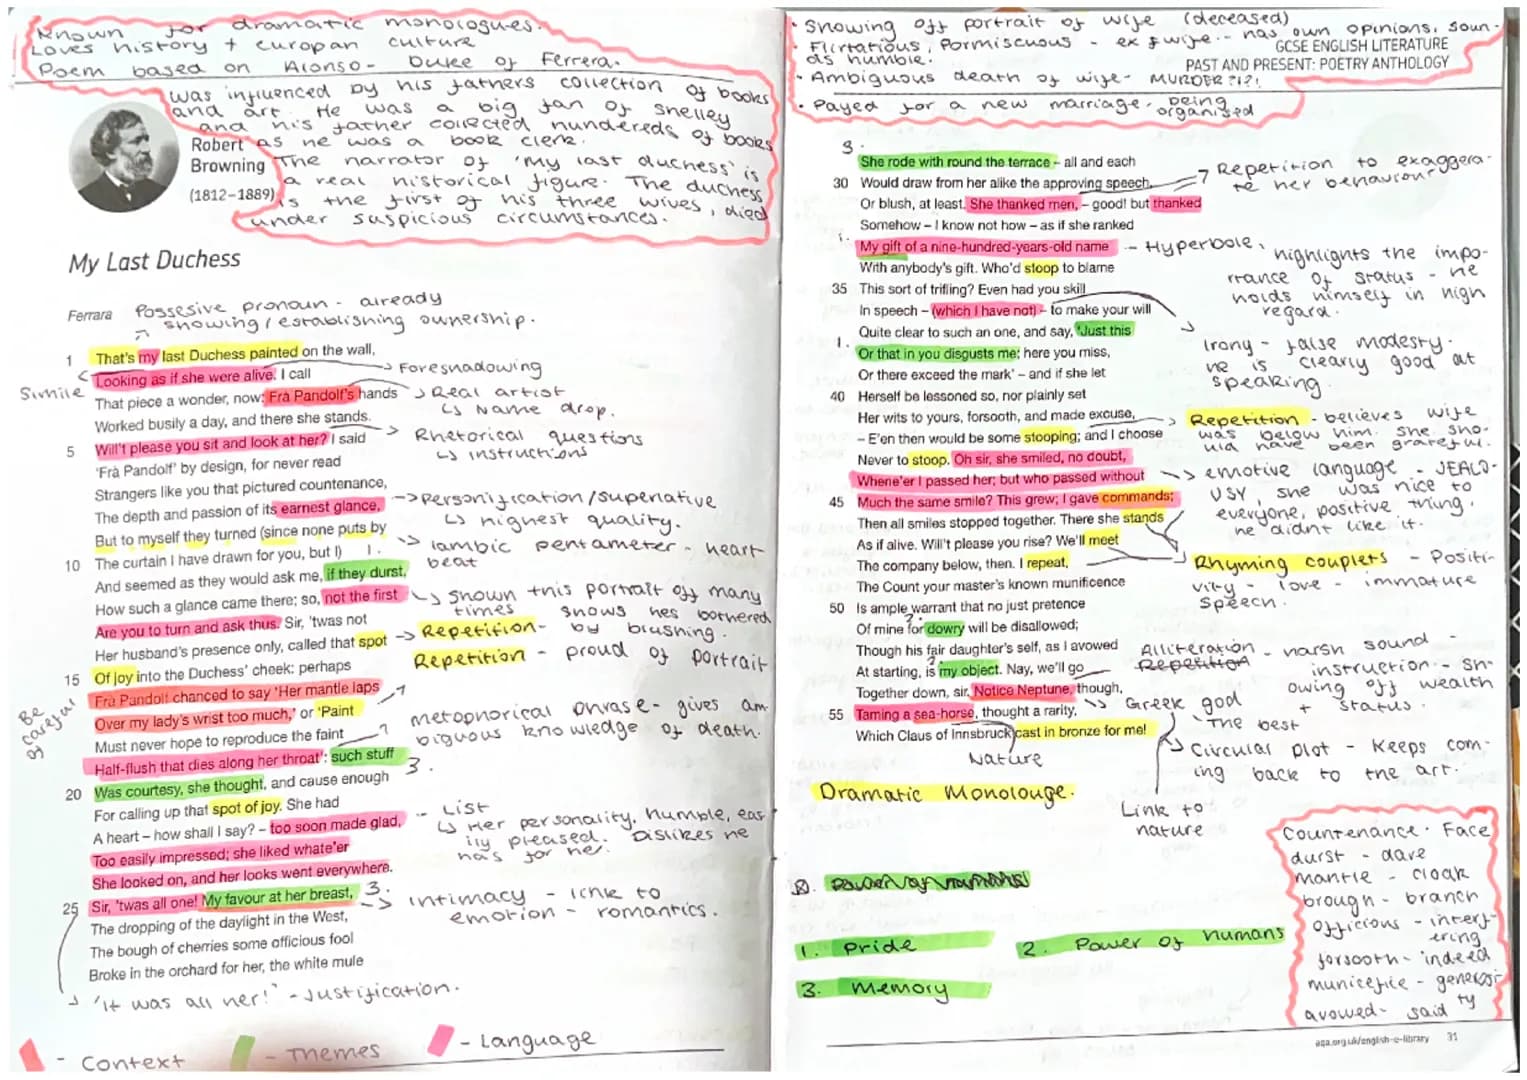 Known for dramatic monologues.
Loves history + europan culture
Poem based on Alonso- Duke of Ferrera.
was influenced by his fathers collection of books
and art. He was a big fan of Shelley
and his father collected hundereds of books
as he was a book clerk.
The narrator of 'My last duchess' is
a real historical figure. The duchess
is the first of his three wives, died
under suspicious circumstances.
Robert
Browning
(1812–1889)
My Last Duchess
Ferrara
Possesive pronoun - already
showing / establishing ownership.
1 That's my last Duchess painted on the wall,
Looking as if she were alive. I call
→ Foreshadowing
Simile
That piece a wonder, now: Frà Pandolf's hands
→ Real artist
↳ Name drop.
Worked busily a day, and there she stands.
5 Will't please you sit and look at her? I said
→ Rhetorical questions
↳ instructions
'Frà Pandolf' by design, for never read
Strangers like you that pictured countenance,
The depth and passion of its earnest glance,
→ personification / superlative
↳ highest quality.
But to myself they turned (since none puts by
→ iambic pentameter - heart
beat
10 The curtain I have drawn for you, but I) 1.
And seemed as they would ask me, if they durst,
How such a glance came there; so, not the first
↳ shown this portrait off many
times
shows hes bothered
by blushing.
Are you to turn and ask thus. Sir, 'twas not
Her husband's presence only, called that spot
→ Repetition-
Repetition - proud of portrait
15 Of joy into the Duchess' cheek: perhaps
Frà Pandolf chanced to say 'Her mantle laps
Over my lady's wrist too much,' or 'Paint
Be
careful
of
Must never hope to reproduce the faint
metophorical phrase- gives am-
biguous knowledge of death.
Half-flush that dies along her throat': such stuff
3.
20 Was courtesy, she thought, and cause enough
For calling up that spot of joy. She had
A heart – how shall I say? – too soon made glad,
- List
↳ Her personality, humble, eas
ily pleased. Dislikes he
has for her.
Too easily impressed; she liked whate'er
She looked on, and her looks went everywhere.
25 Sir, 'twas all one! My favour at her breast, 3.
→ intimacy - link to
emotion - romantics.
The dropping of the daylight in the West,
The bough of cherries some officious fool
Broke in the orchard for her, the white mule
→ 'it was all her!' - Justification.
- Context
- Themes
- Language
• Showing off portrait of wife (deceased)
• Flirtatious, Pormiscuous - ex wife - has own opinions, soun-
ds humble.
• Ambiguous death of wife- MURDER?!?!
• Payed for a new marriage, being
organised
GCSE ENGLISH LITERATURE
PAST AND PRESENT: POETRY ANTHOLOGY
3.
She rode with round the terrace – all and each
30 Would draw from her alike the approving speech,
→ Repetition to exaggera-
te her behaviour
Or blush, at least. She thanked men, – good! but thanked
Somehow – I know not how – as if she ranked
1.
My gift of a nine-hundred-years-old name
- Hyperbole,
highlights the impo-
rtance of status - he
holds himself in high
regard.
With anybody's gift. Who'd stoop to blame
35 This sort of trifling? Even had you skill
In speech – (which I have not) – to make your will
Irony - false modesty.
he is clearly good at
speaking.
Quite clear to such an one, and say, 'Just this
1.
Or that in you disgusts me; here you miss,
Or there exceed the mark' – and if she let
40 Herself be lessoned so, nor plainly set
Her wits to yours, forsooth, and made excuse,
→ Repetition - believes wife
was below him. she sho-
uld have been grateful.
– E'en then would be some stooping; and I choose
Never to stoop. Oh sir, she smiled, no doubt,
Whene'er I passed her; but who passed without
→ emotive language - JEALO-
USY, she was nice to
everyone, positive thing,
he didnt like it.
45 Much the same smile? This grew; I gave commands;
Then all smiles stopped together. There she stands
As if alive. Will't please you rise? We'll meet
The company below, then. I repeat,
→ Rhyming couplets - Positi-
vity - love - immature
speech.
The Count your master's known munificence
50 Is ample warrant that no just pretence
2.
Of mine for dowry will be disallowed;
Though his fair daughter's self, as I avowed
2.
At starting, is my object. Nay, we'll go
Alliteration - harsh sound -
Repetition
instruction - sh-
owing off wealth
+ status.
Together down, sir. Notice Neptune, though,
→ Greek god
'The best
55 Taming a sea-horse, thought a rarity,
Which Claus of Innsbruck cast in bronze for me!
Nature
→ Circular plot - keeps com-
ing back to the art.
Link to
nature
Dramatic Monolouge.
1. Pride
2. Power of humans
3. Memory
Countenance - Face
durst - dare
mantle - cloak
brough - branch
officious - interf-
ering
forsooth - indeed
municefice - generosi
ty
avowed- said
aqa.org.uk/english-e-library 31